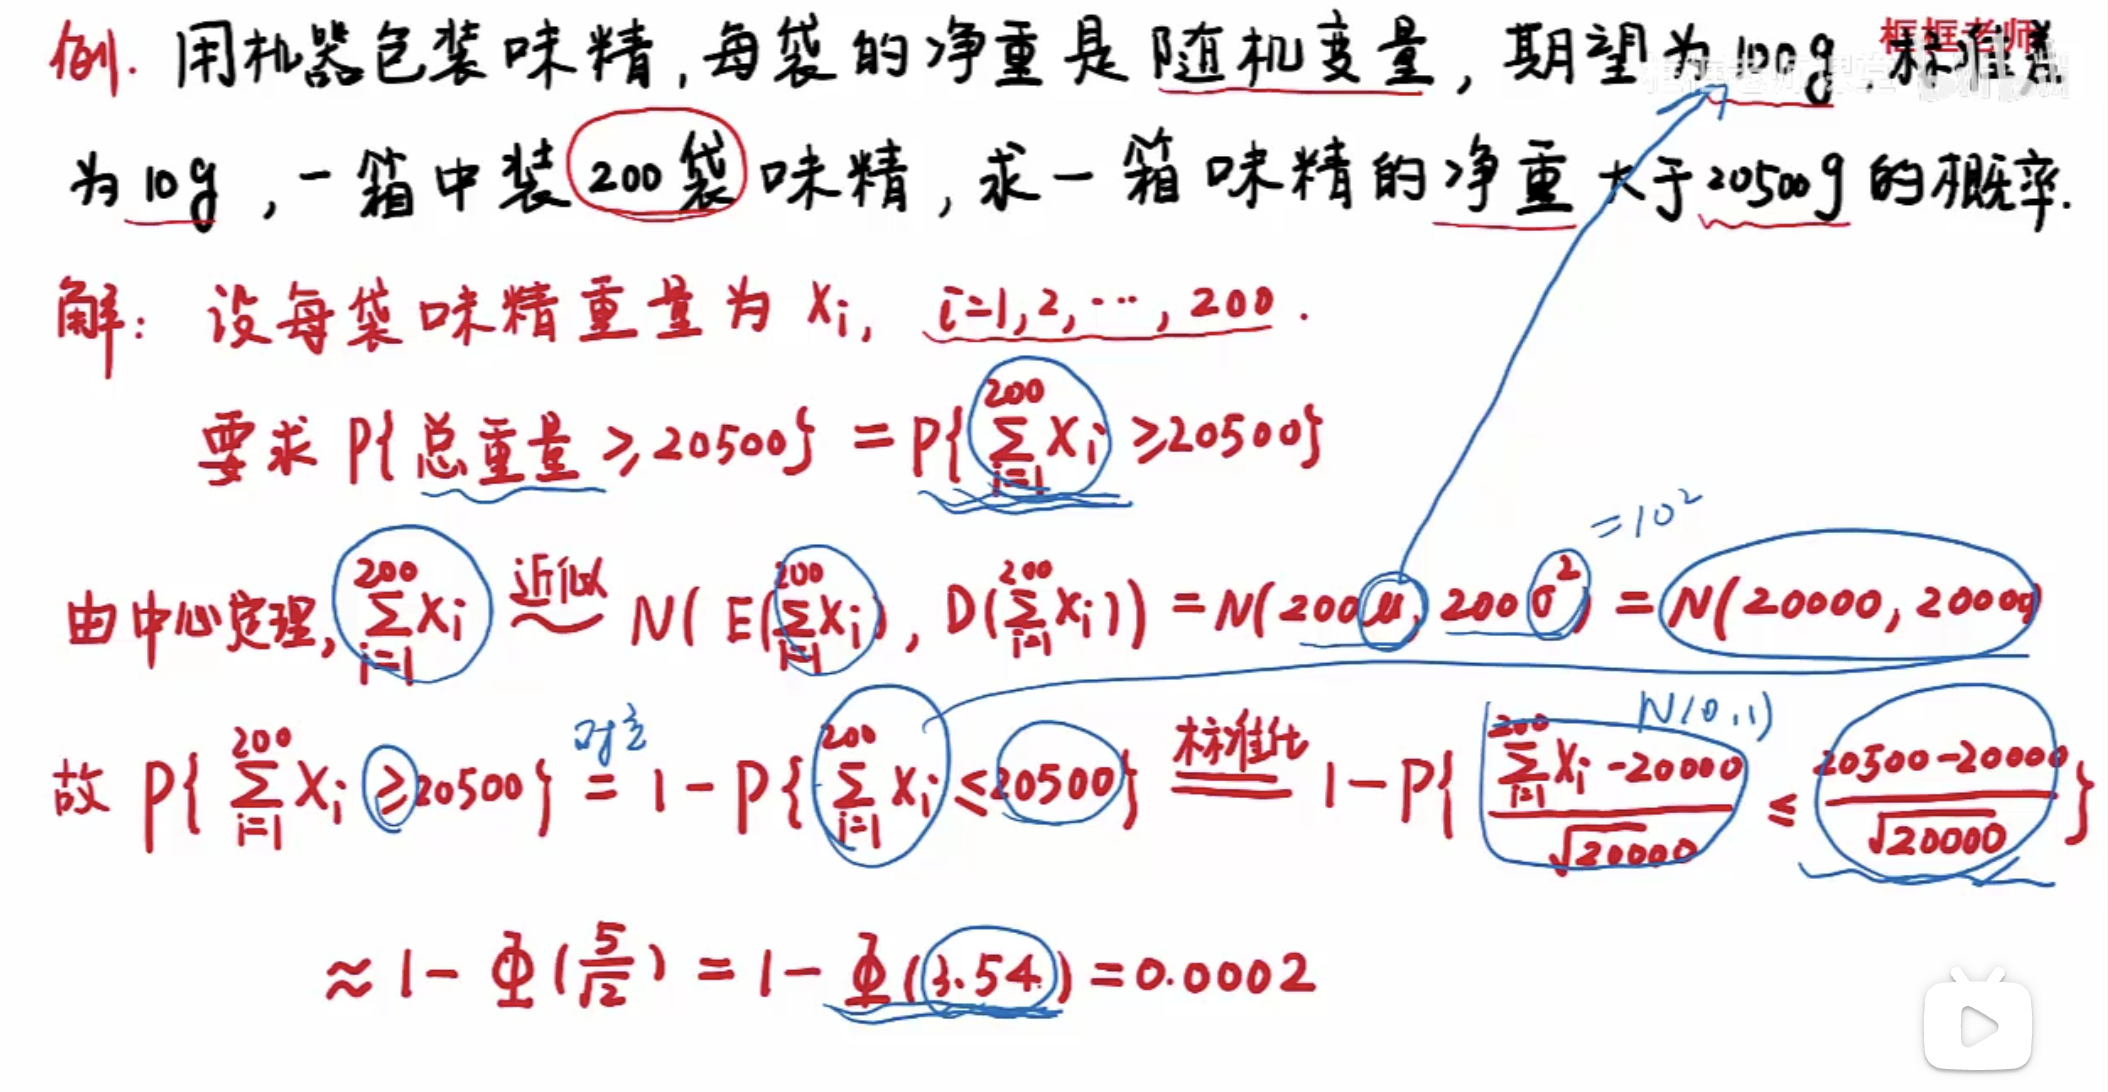 例. 用机器包装味精,每袋的净重是随机变量,期望为100g,标准差
框框老师
框框老师课堂 bilibili
为10g,一箱中装200袋味精,求一箱味精的净重大于20500g的概率.
解: 设每袋味精重量为 Xi, i=1,2,…,200.
要求 P{总重量≥20500} = P{∑_{i=1}^{200} Xi ≥20500}
=10²
由中心定理, ∑_{i=1}^{200} Xi 近似~ N( E(∑_{i=1}^{200} Xi), D(∑_{i=1}^{200} Xi)) = N(200μ, 200σ²) = N(20000, 20000)
N(0,1)
故 P{∑_{i=1}^{200} Xi ≥20500} 对立= 1-P{∑_{i=1}^{200} Xi ≤20500} 标准化= 1-P{(∑_{i=1}^{200} Xi -20000)/√20000 ≤ (20500-20000)/√20000}
≈ 1- Φ(5/√2) = 1- Φ(3.54) = 0.0002